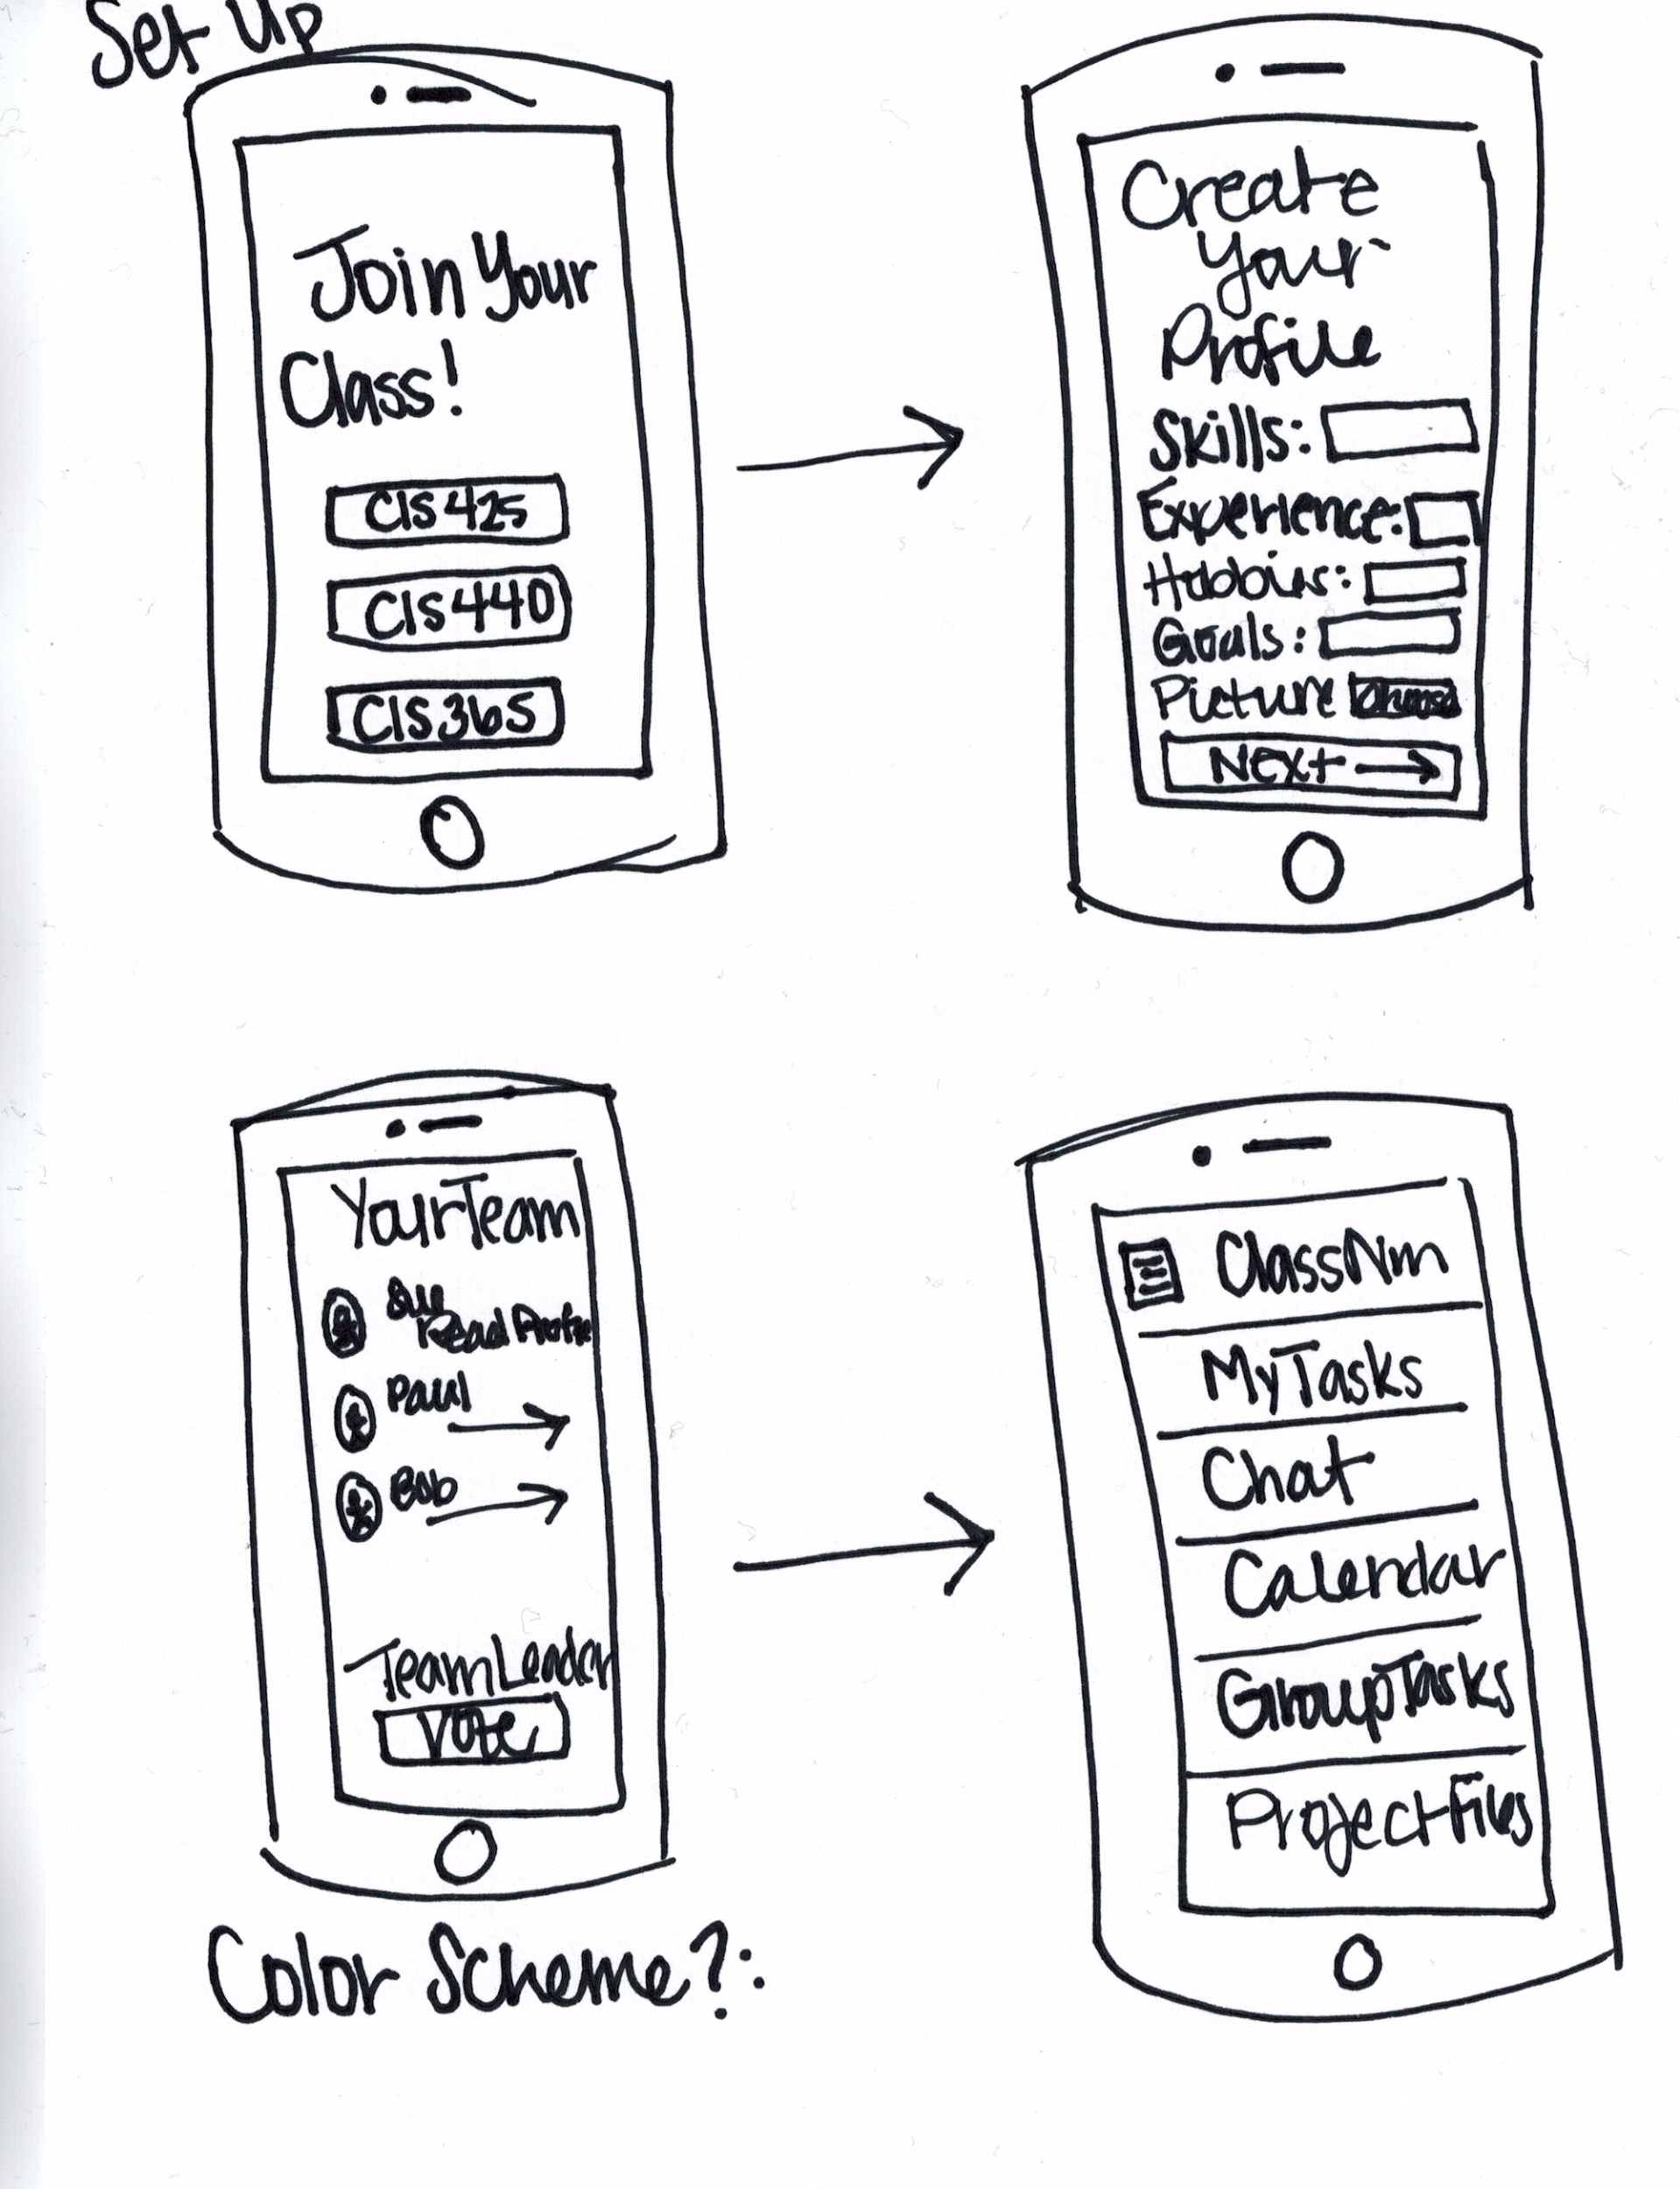 Set Up
Join Your
Class!
CIS425
CIS440
CIS365
Create
Your
Profile
Skills:
Experience:
Hobbies:
Goals:
Picture Choose
Next →
Your Team
Sue
Read Profile
Paul
Bob
Team Leader
Vote
Class Nm
My Tasks
Chat
Calendar
Group Tasks
Project Files
Color Scheme?: